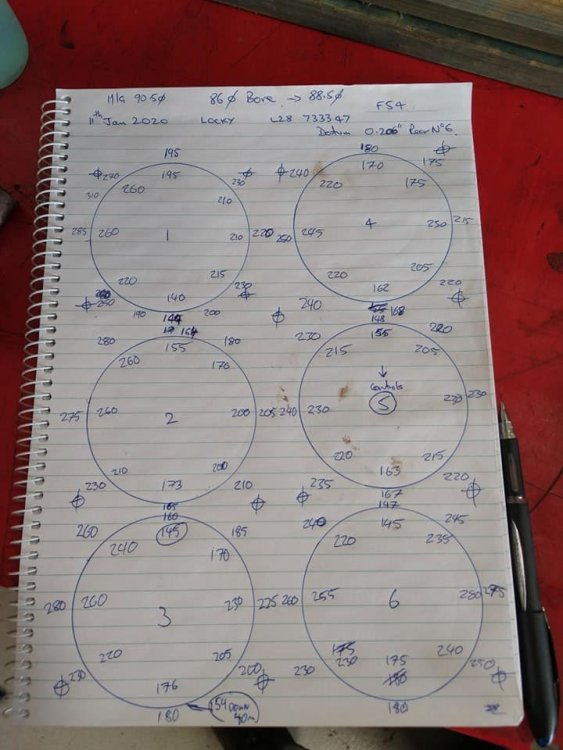 90.5ø 86ø Bore → 88.5ø FS4
11th Jan 2020 LOCKY L28 733347
Datum 0.206" Rear No 6.
195
270 195 230
310 260 210
285 260 1 210 220
220 215 230
250 140
190 144 200
180
240 170 175
220 175
250 245 4 230 215
220 205
162 220
240 168
164
280 155 180
260 170
275 260 2 200 205
210 200
230 173 210
165
148
230 155 220
215 205
controls
240 230 5 220 230
220 215
235 163 220
167
160
260 145 185
240 170
280 260 3 230 225
220 205
230 200
176
154 Down 40m
180
147
240 145 245
220 235
260 255 6 280 275
240
230 230 175 250
180